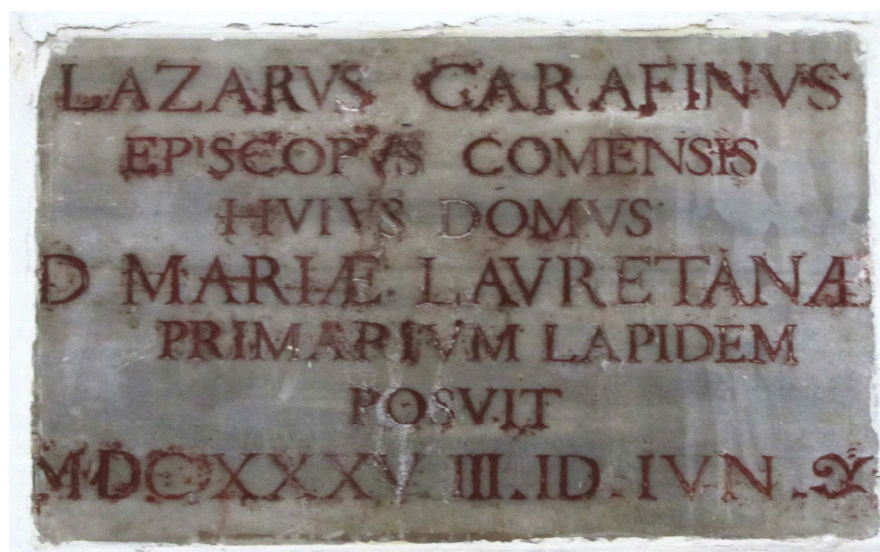 LAZARVS CARAFINVS
EPISCOPVS COMENSIS
HVIVS DOMVS
D MARIÆ LAVRETANÆ
PRIMARIVM LAPIDEM
POSVIT
MDCXXXV III.ID.IVN.